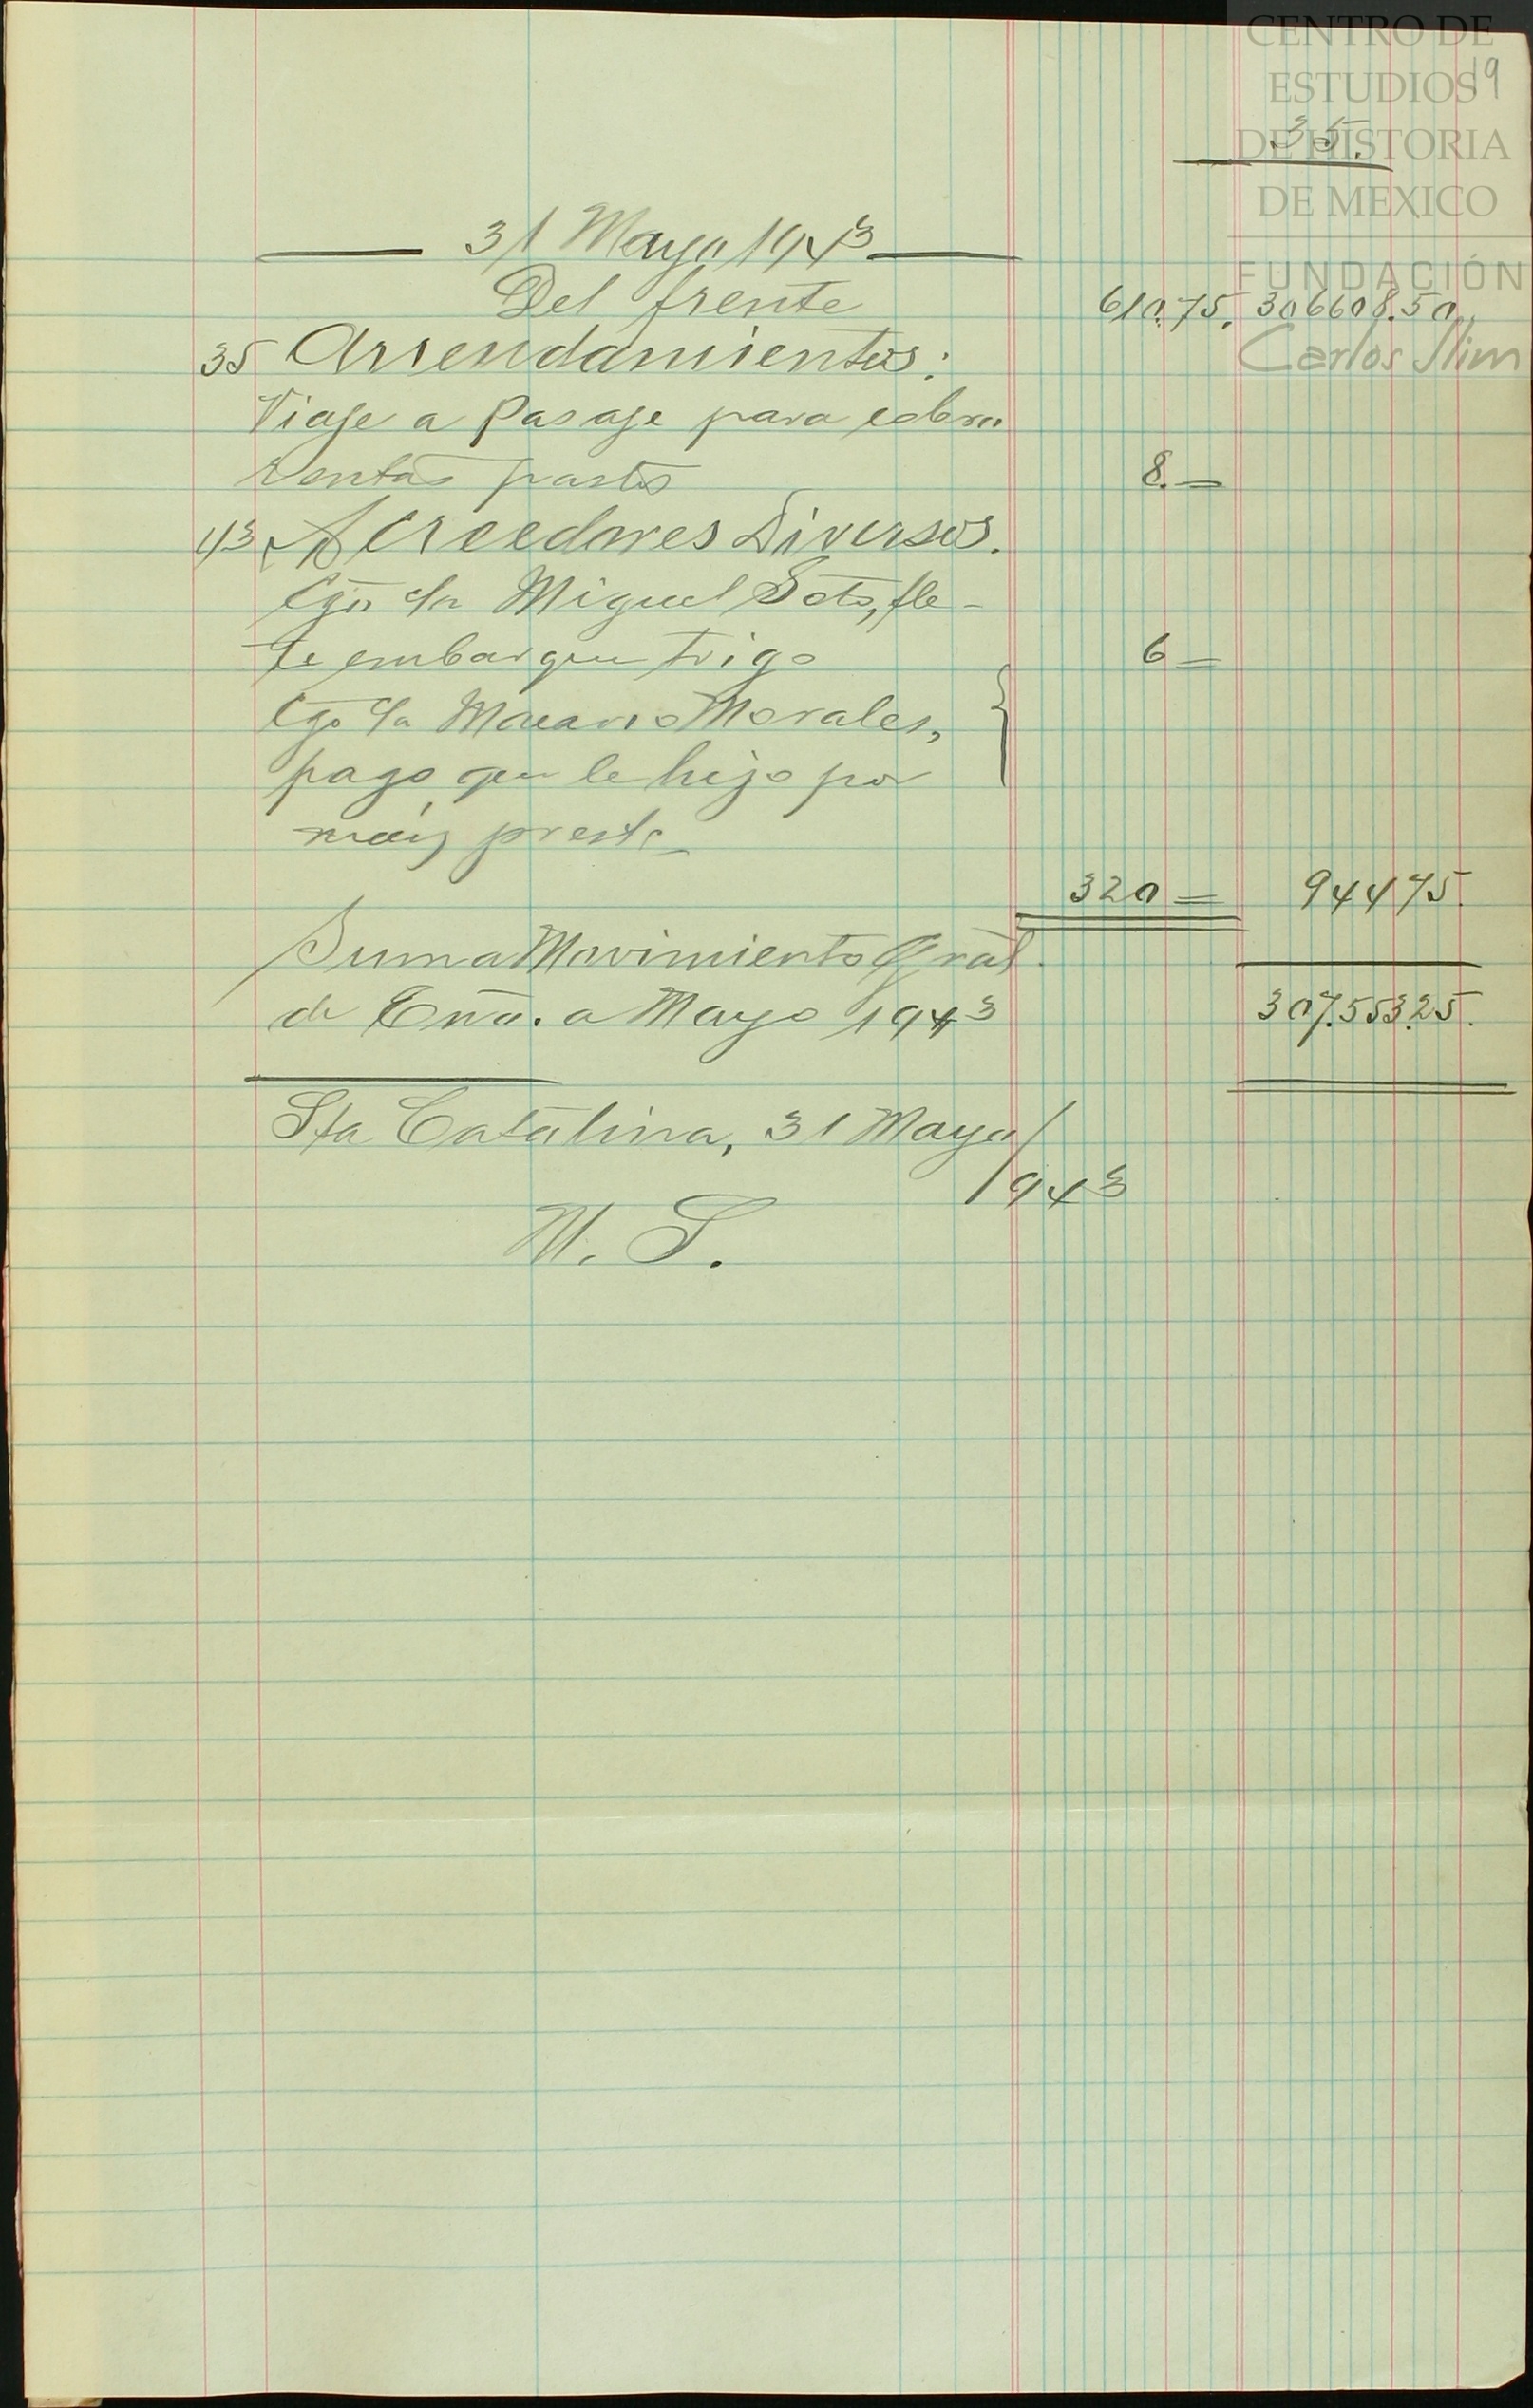 CENTRO DE
ESTUDIOS
19
DE HISTORIA
35.
DE MEXICO
FUNDACIÓN
Carlos Slim
31 Mayo 1943
Del frente 610.75. 306608.50
35 Arrendamientos:
Viaje a Pasaje para cobrar
rentas pastos 8.—
43 Acreedores Diversos.
Cgo. Cta Miguel Soto, fle-
te embarque trigo 6—
Cgo Cta Macario Morales,
pago que le hizo por
maíz presto
320= 94475.
Suma Movimiento Gral.
de Eno. a Mayo 1943 307.553.25.
Sta Catalina, 31 Mayo/
1943
M. S.